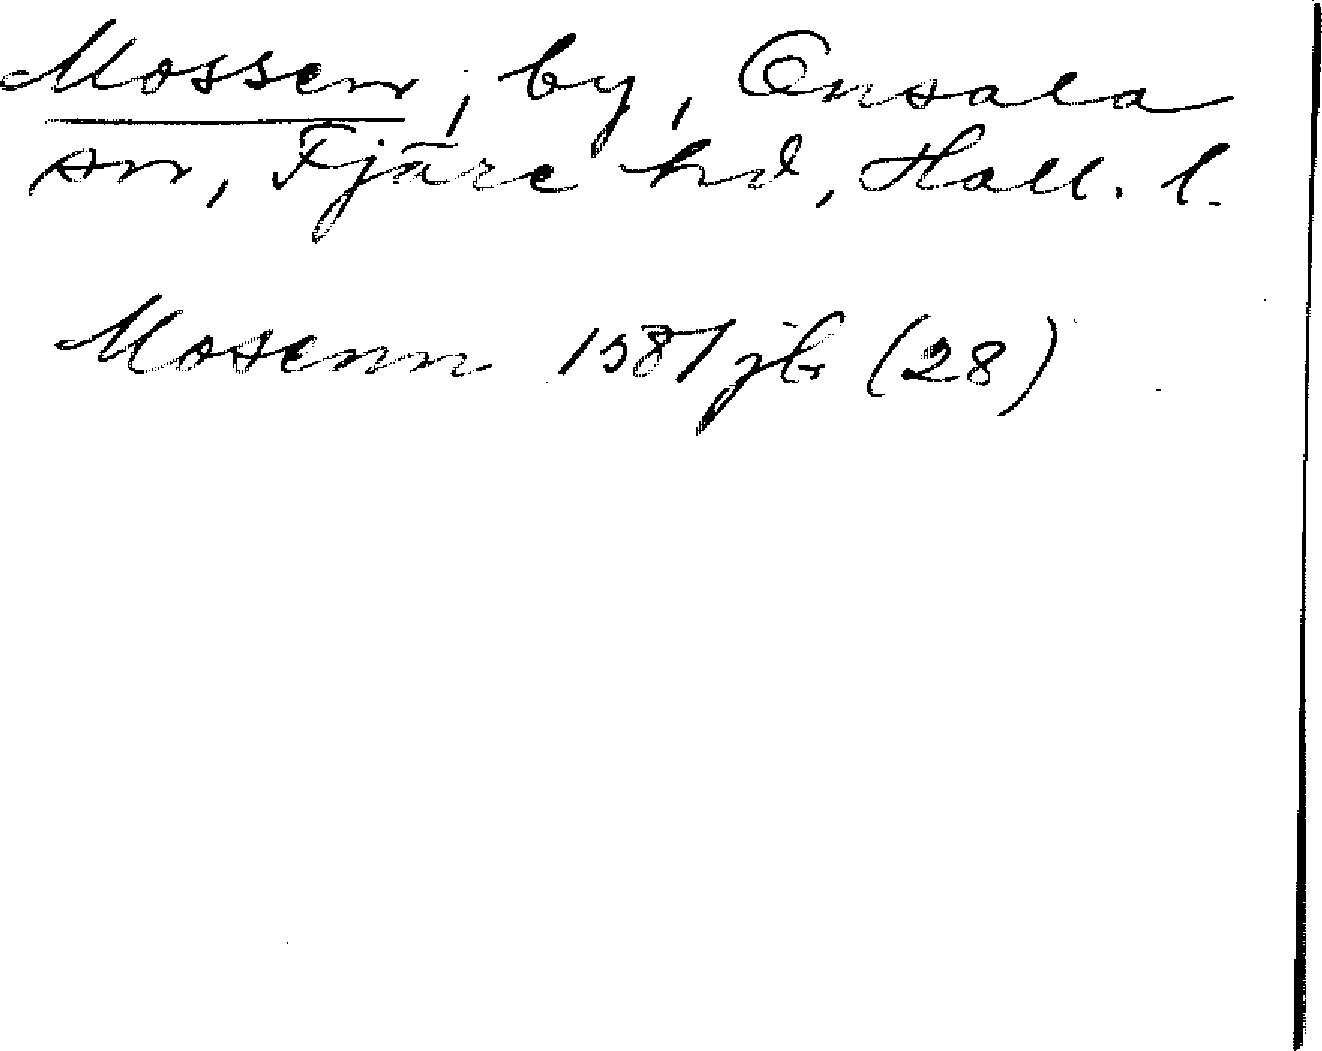 Mossen, by, Onsala
sn, Fjäre hd, Hall. l.
Mosenn 1581 jb (28)